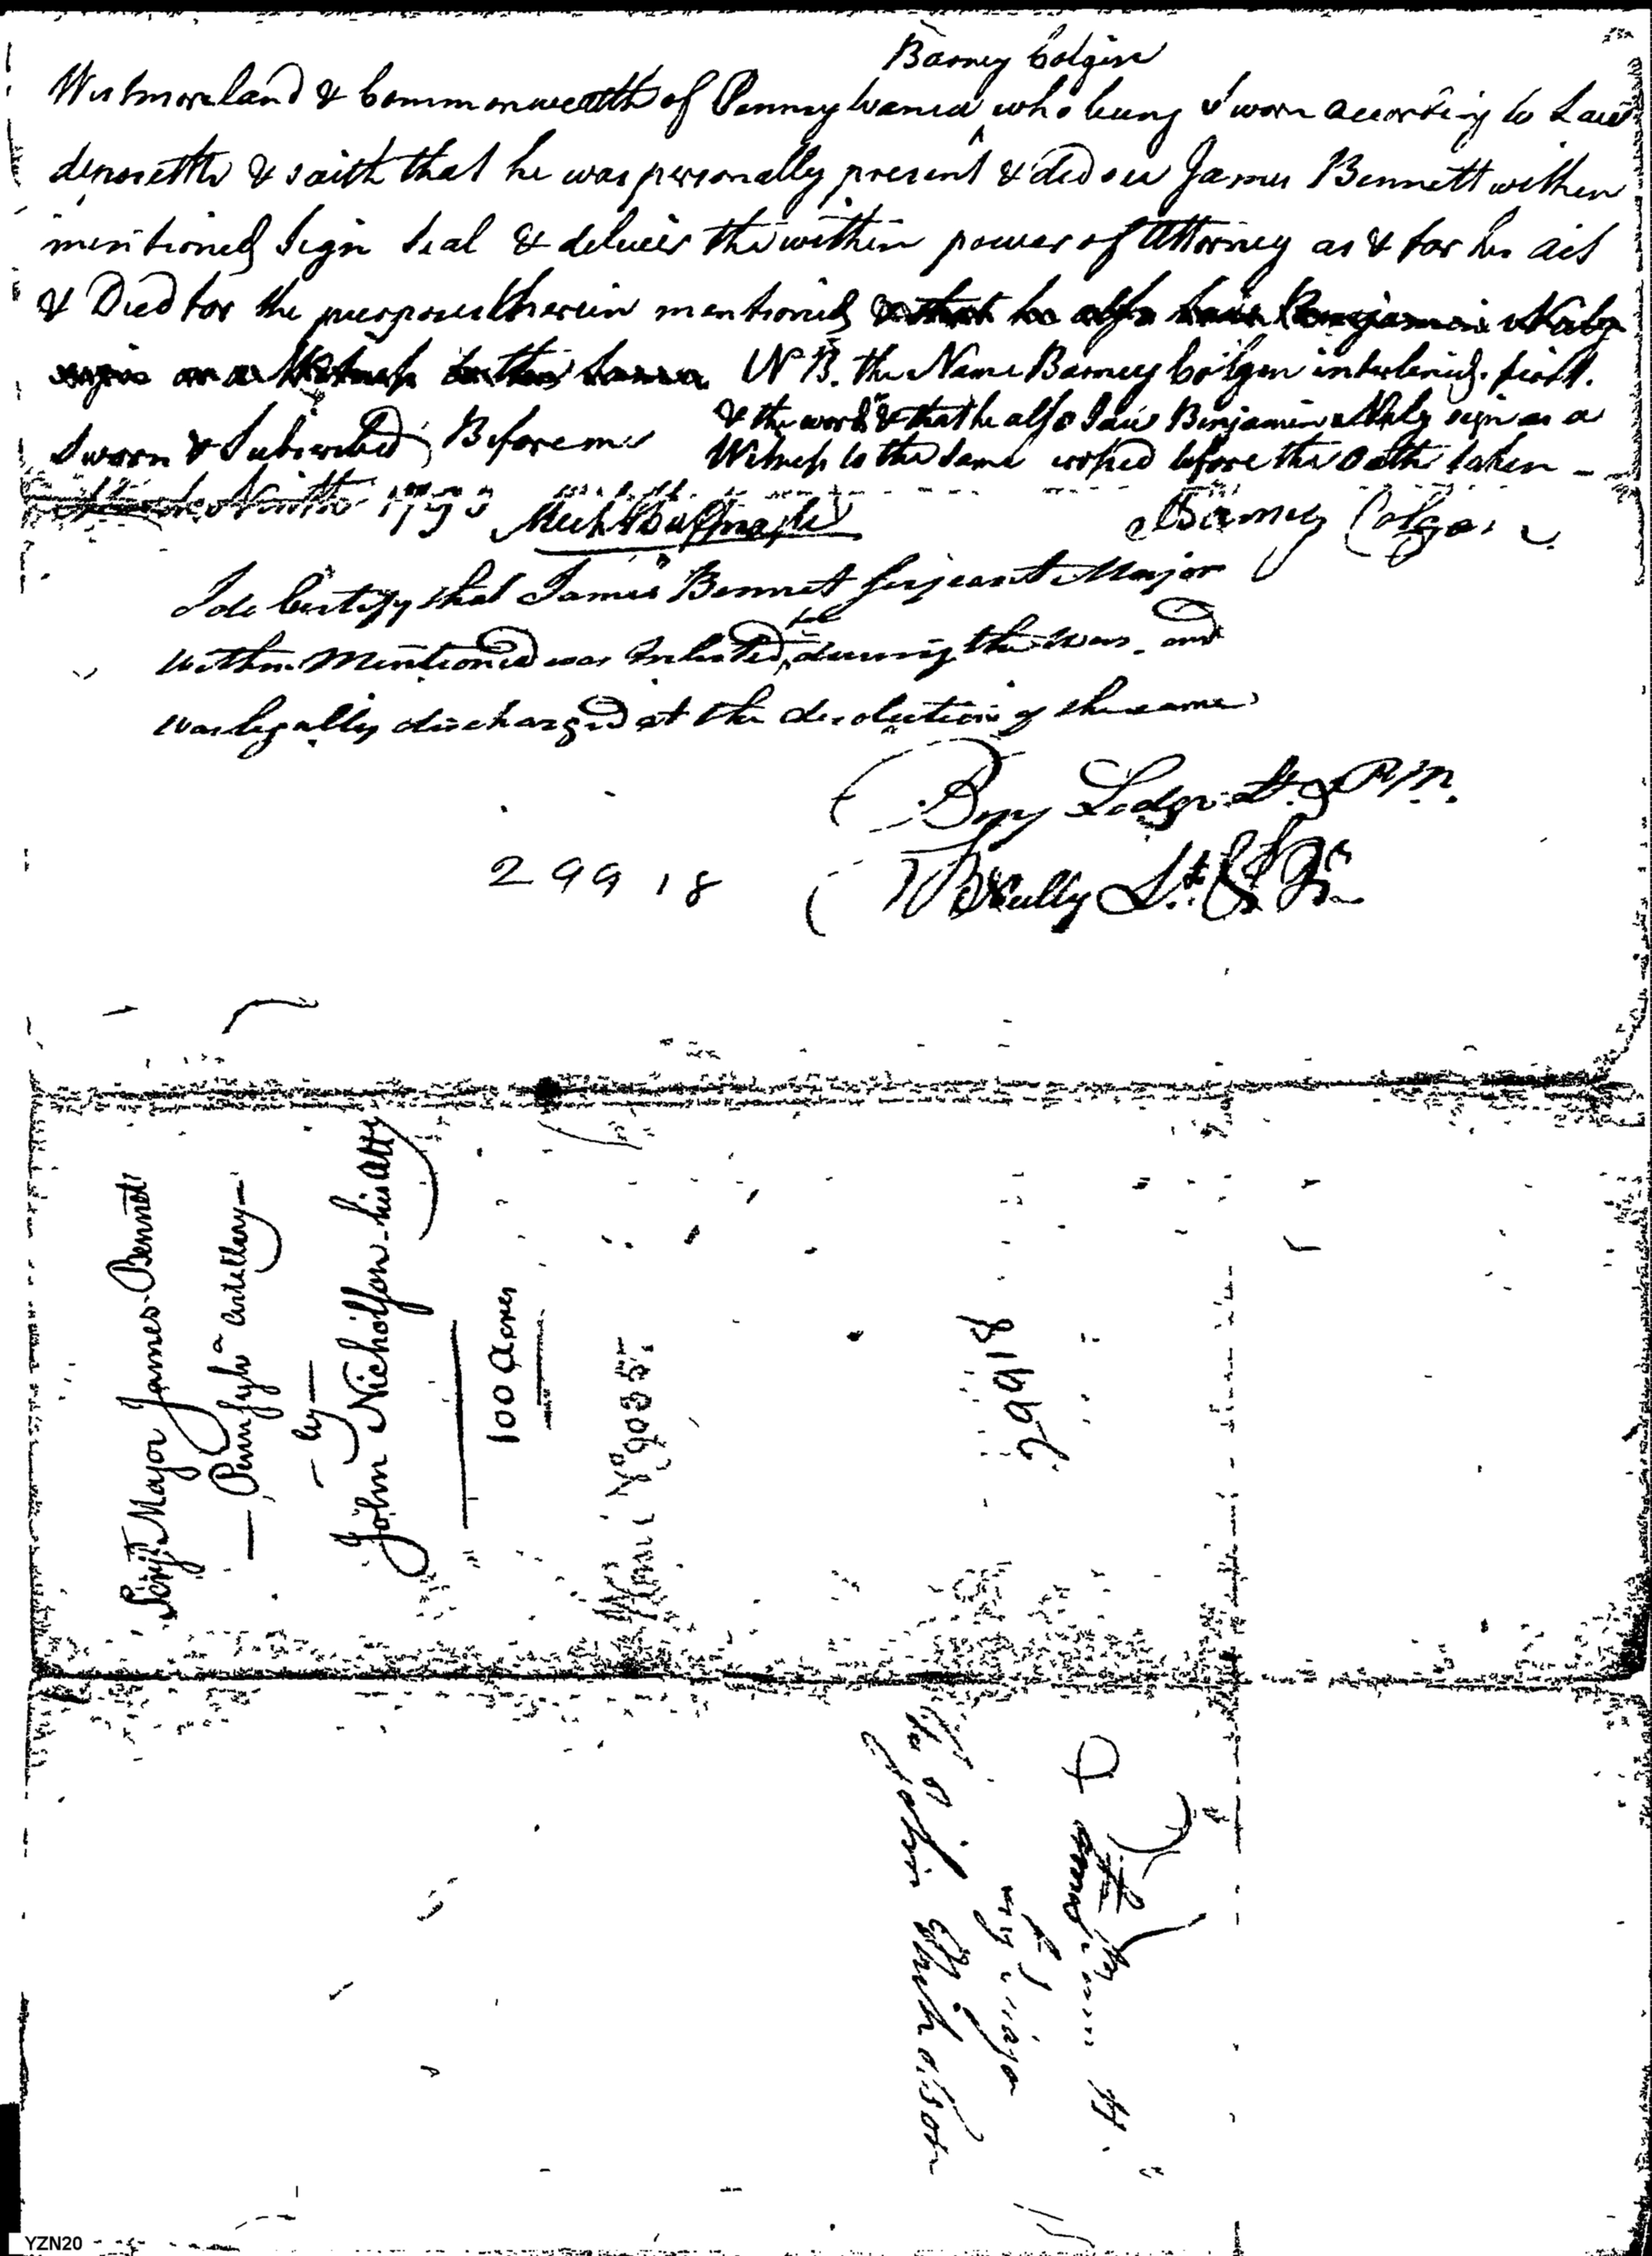 Barney Colgin
Westmoreland & Commonwealth of Pennsylvania ^ who being Sworn according to Law
deposeth & saith that he was personally present & did see James Bennett within
mentioned Sign Seal & deliver the within power of Attorney as & for his act
& Deed for the purposes therein mentioned & that he also saw Benjamin
sign as a Witness to the same N B. the Name Barney Colgin interlined. first.
& the words & that he also saw Benjamin sign as a
Sworn & Subscribed Before me
Witness to the same erased before the Oath taken —
1793
Barney Colgan
I do Certify that James Bennet Serjeant Major
within Mentioned was Inlisted for during the War. and
was legally discharged at the desolution of the same
Lodge Lt.
29918
Scully Lt.
Serjt. Major James Bennet
— Pennsylva Artillery —
— by —
John Nicholson his Atty
100 Acres
No 9035
29918
to
John Nicholson